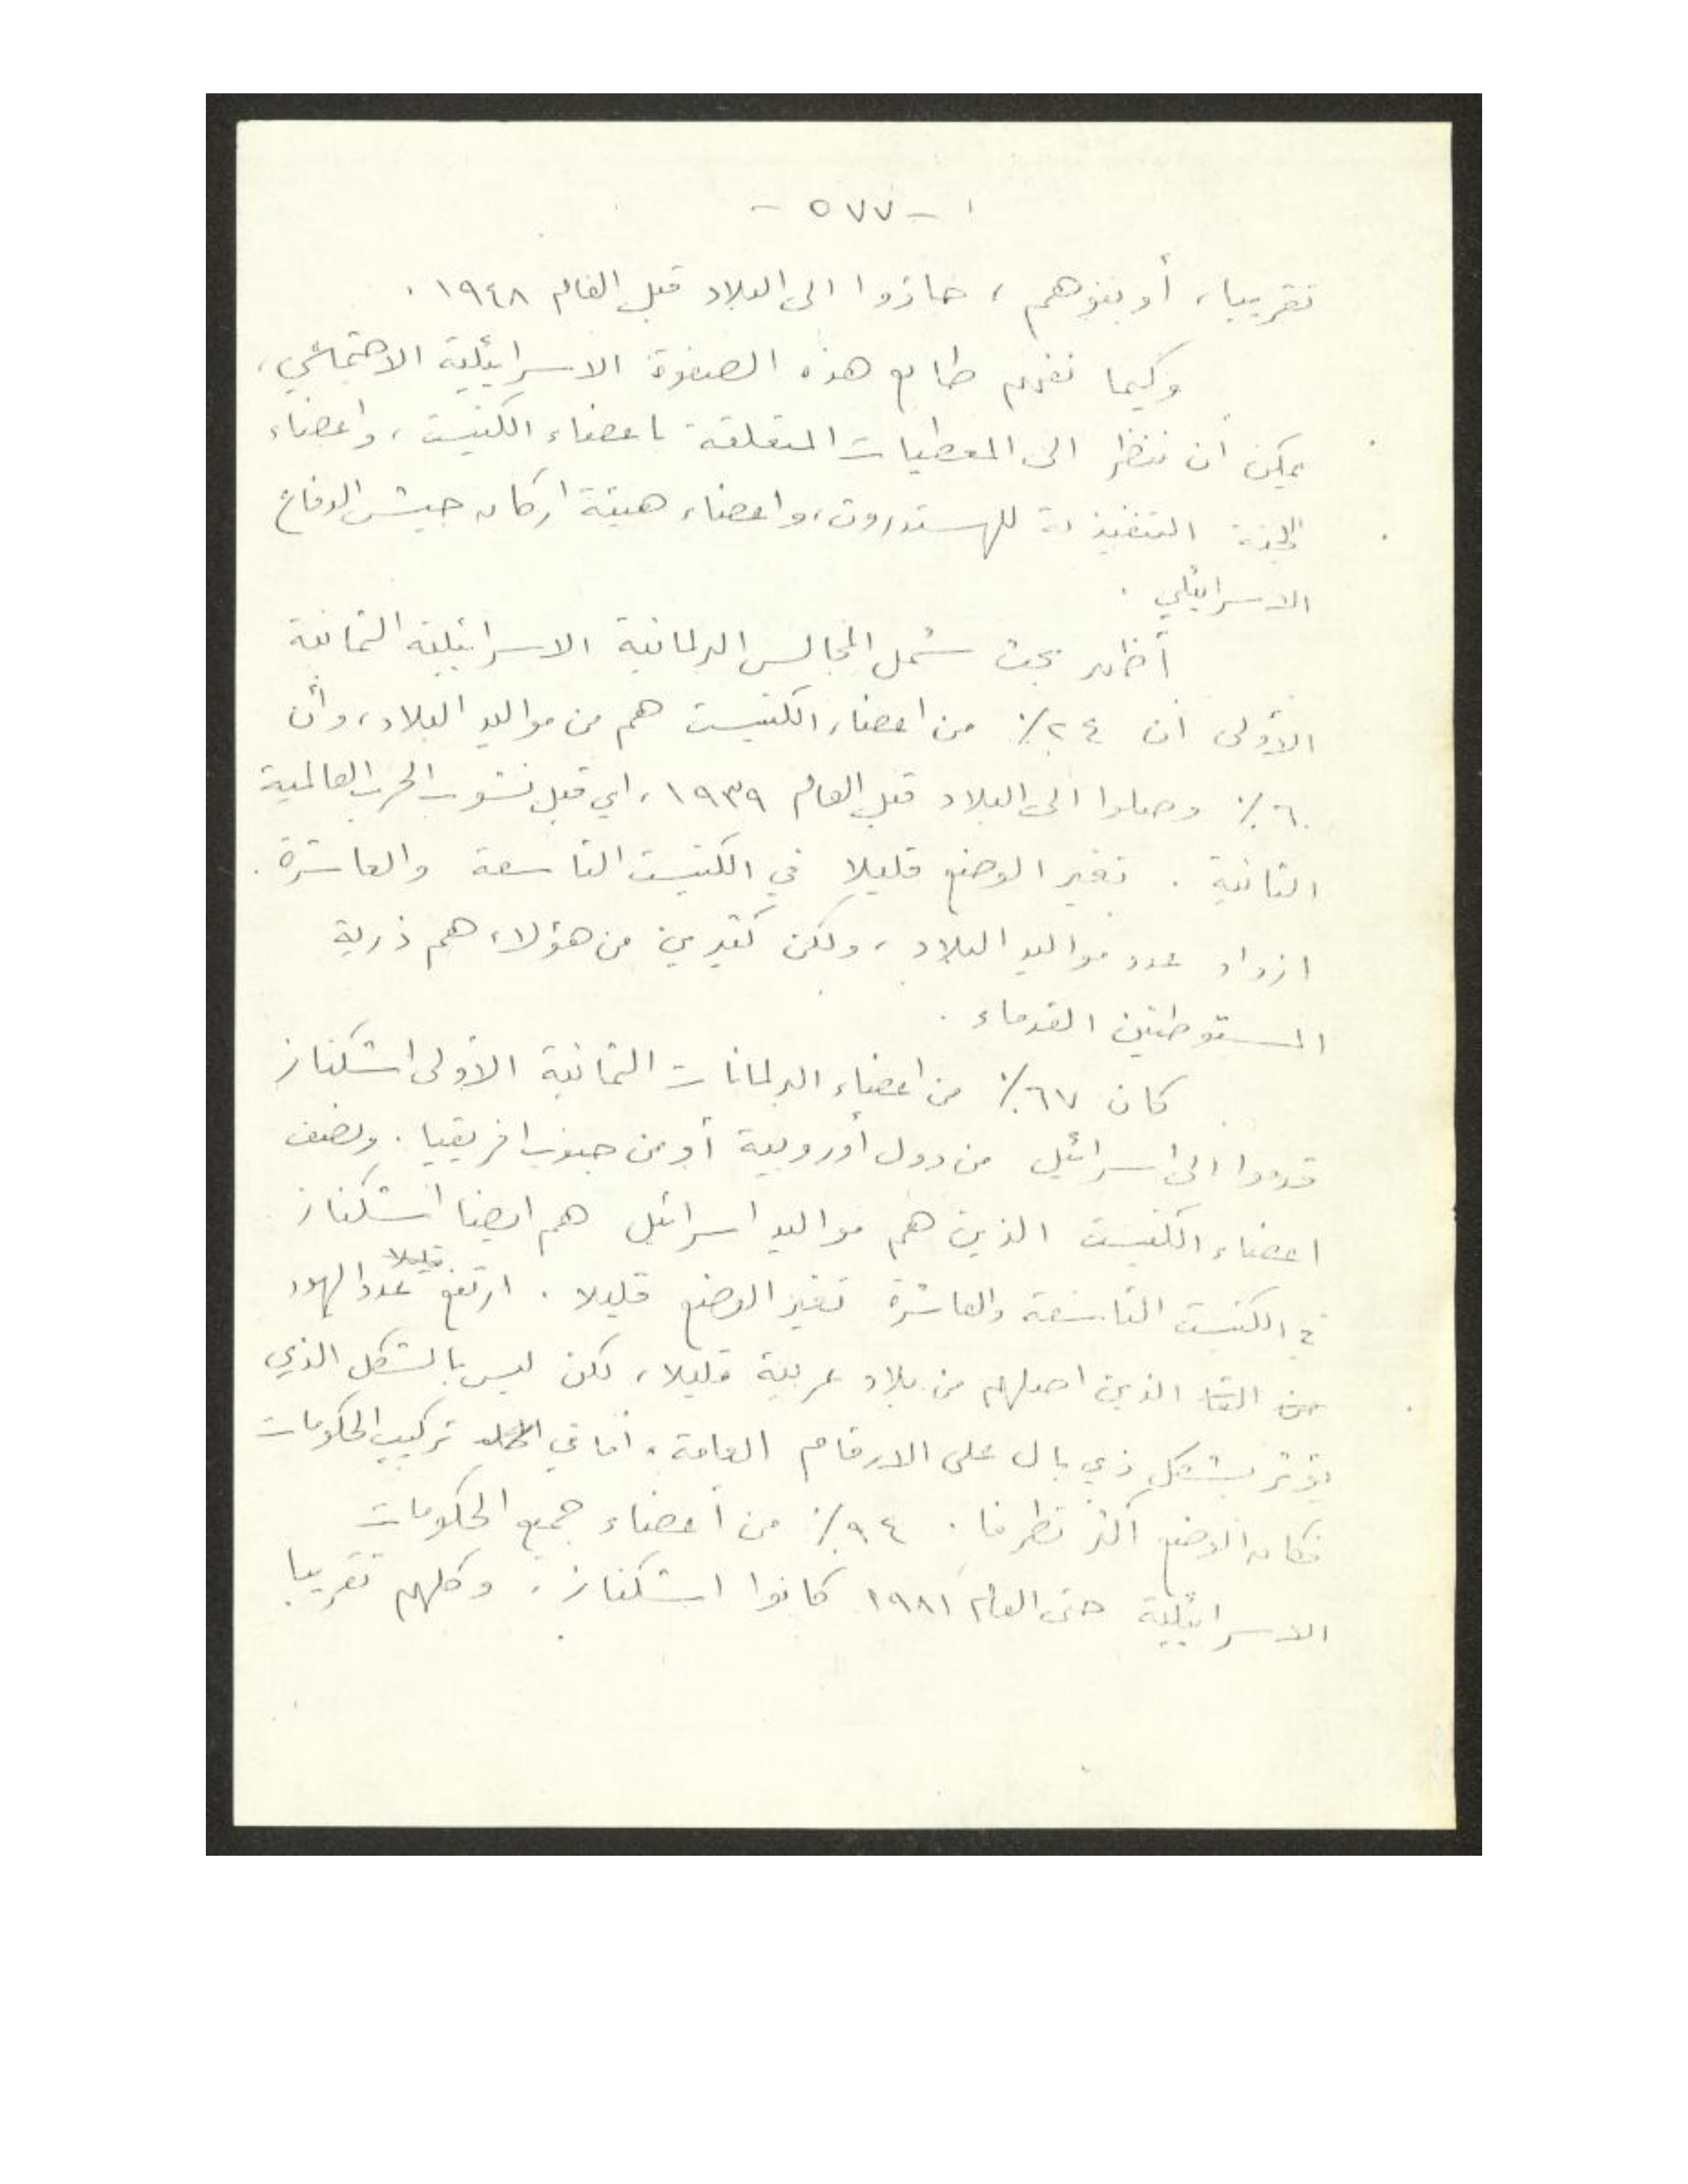 - ٥٧٧ -
تقريبا، أو بنوهم، جاؤوا الى البلاد قبل العام ١٩٤٨.
وكيما نفهم طابع هذه الصفوة الاسرائيلية الاجتماعي،
يمكن أن ننظر الى المعطيات المتعلقة باعضاء الكنيست، واعضاء
اللجنة التنفيذية للهستدروت، واعضاء هيئة اركان جيش الدفاع
الاسرائيلي.
أظهر بحث شمل المجالس البرلمانية الاسرائيلية الثمانية
الأولى أن ٢٤٪ من اعضاء الكنيست هم من مواليد البلاد، وأن
٦٠٪ وصلوا الى البلاد قبل العام ١٩٣٩، اي قبل نشوب الحرب العالمية
الثانية. تغير الوضع قليلا في الكنيست التاسعة والعاشرة.
ازداد عدد مواليد البلاد، ولكن كثيرين من هؤلاء هم ذرية
المستوطنين القدماء.
كان ٦٧٪ من اعضاء البرلمانات الثمانية الأولى اشكناز
قدموا الى اسرائيل من دول أوروبية أو من جنوب افريقيا. ونصف
اعضاء الكنيست الذين هم مواليد اسرائيل هم ايضا اشكناز
في الكنيست التاسعة والعاشرة تغير الوضع قليلا. ارتفع قليلا عدد اليهود
الذين اصلهم من بلاد عربية قليلا، لكن ليس بالشكل الذي
يؤثر بشكل ذي بال على الارقام العامة. أما في تركيب الحكومات
فكان الوضع أكثر تطرفا. ٩٤٪ من أعضاء جميع الحكومات
الاسرائيلية حتى العام ١٩٨١ كانوا اشكناز، وكلهم تقريبا